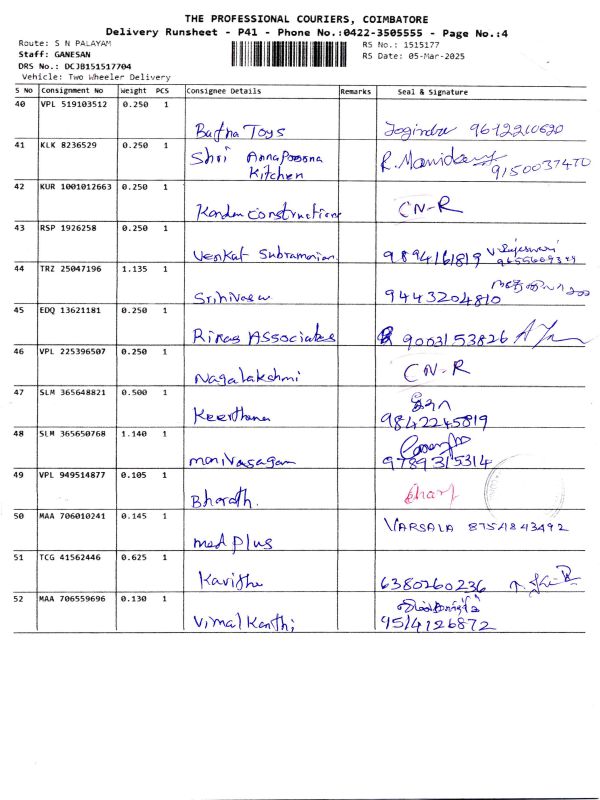 THE PROFESSIONAL COURIERS, COIMBATORE
Delivery Runsheet - P41 - Phone No.:0422-3505555 - Page No.:4
Route: S N PALAYAM
RS No.: 1515177
Staff: GANESAN
RS Date: 05-Mar-2025
DRS No.: DCJB151517704
Vehicle: Two Wheeler Delivery
S No Consignment No Weight PCS Consignee Details Remarks Seal & Signature
40 VPL 519103512 0.250 1
Bafna Toys Jogindra 9612210620
41 KLK 8236529 0.250 1
Shri Annapoorna R. Manickam
Kitchen 9150037470
42 KUR 1001012663 0.250 1
Kandan Construction CN-R
43 RSP 1926258 0.250 1
Venkat Subramanian 9894161819
44 TRZ 25047196 1.135 1
Srinivasan 9443204810
45 EDQ 13621181 0.250 1
Rinas Associates 9003153826
46 VPL 225396507 0.250 1
Nagalakshmi CN-R
47 SLM 365648821 0.500 1
Keerthana 9842245819
48 SLM 365650768 1.140 1
manivasagam 9789315314
49 VPL 949514877 0.105 1
Bharath.
50 MAA 706010241 0.145 1
VARSALA 8754843492
med plus
51 TCG 41562446 0.625 1
Kavitha 6380260236
52 MAA 706559696 0.130 1
Vimal Kanthi 9514126872